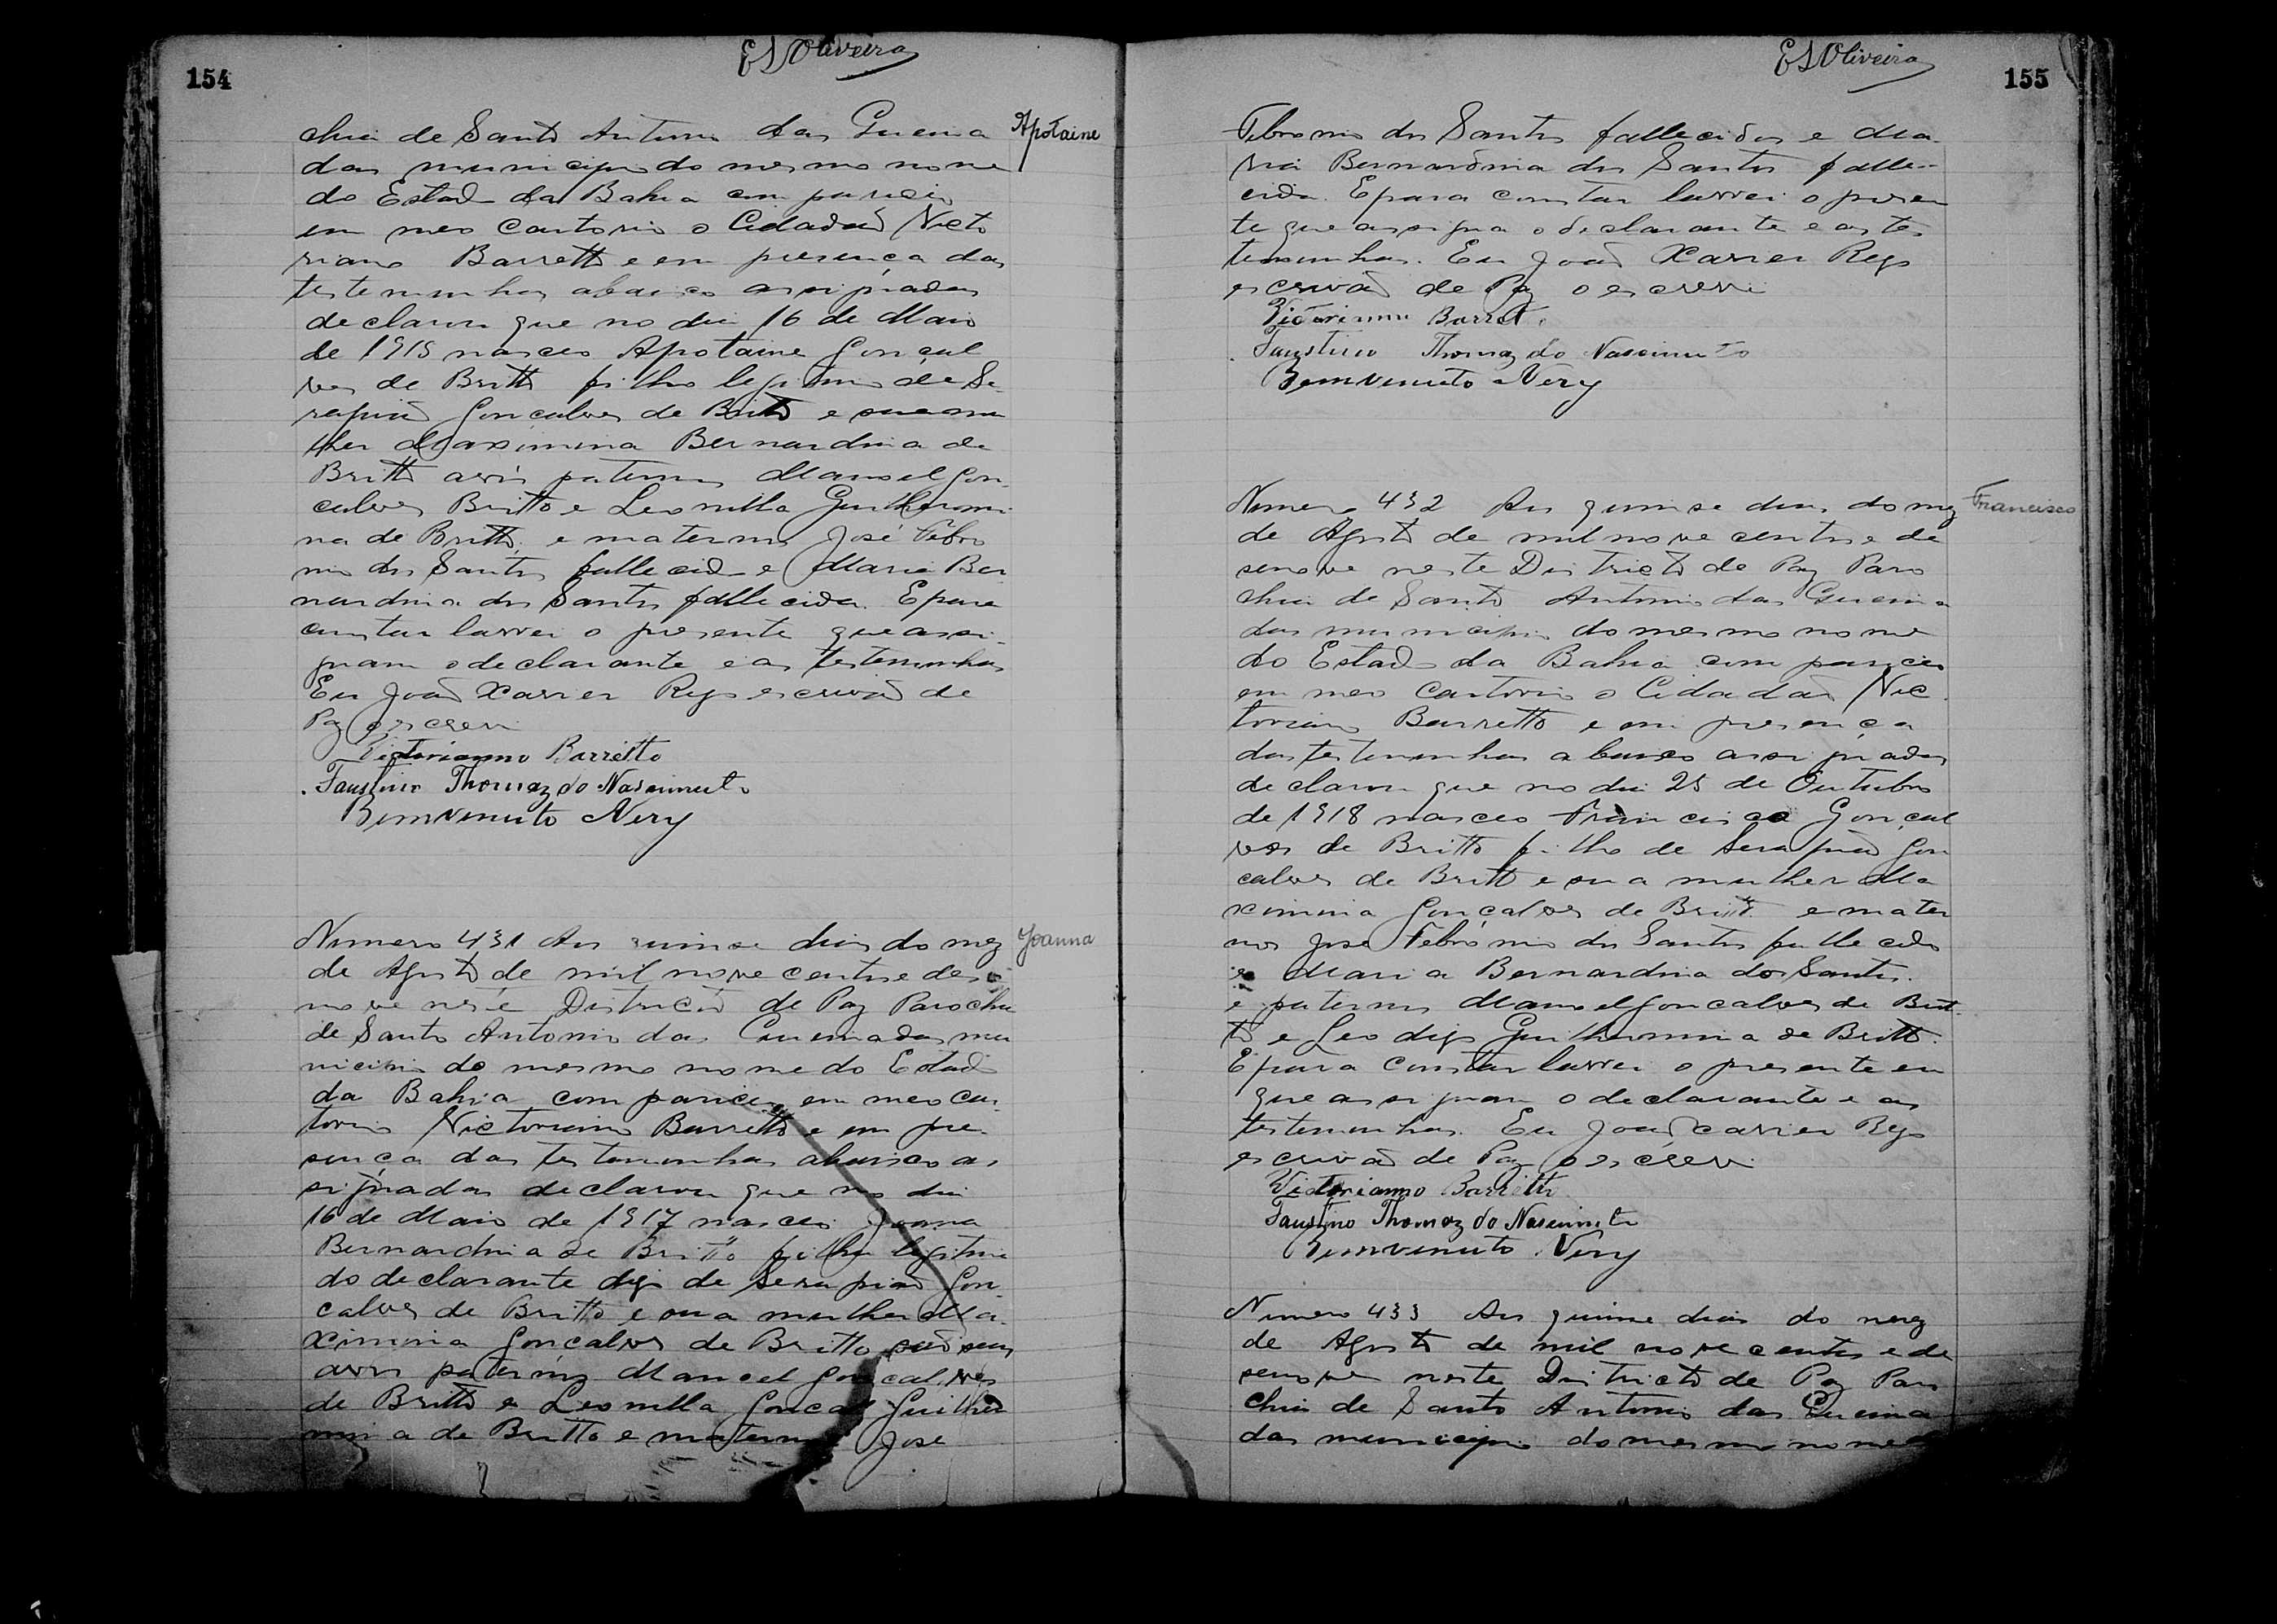 154
ESOliveira
chia de Santo Antonio das Queima
Apotaine
das municipio do mesmo nome
do Estado da Bahia compareceu
em meo Cartorio o Cidadão Victo
riano Barretto e em presença das
testemunhas abaixo assignadas
declarou que no dia 16 de Maio
de 1915 nasceo Apotaine Gonçal
ves de Britto filho legitimo de Se-
rapião Gonçalves de Britto e sua mu
lher Maximina Bernardina de
Britto avós paternos Manoel Gon-
calves Britto e Leonilla Guilhermi
na de Britto, e maternos José Febro
nio dos Santos fallecido e Maria Ber
nardina dos Santos fallecida. E para
constar lavrei o presente que assi-
gnam o declarante e as testemunhas
Eu João Xavier Reys escrivão de
Paz o escrevi
Victorianno Barretto
Faustino Thomaz do Nascimento
Bemvenuto Nery
Numero 431 Aos quinse dias do mez
Joanna
de Agosto de mil nove centos e des e
nove neste Districto de Paz Parochia
de Santo Antonio das Queimadas mu
nicipio do mesmo nome do Estado
da Bahia compareceu em meo car
torio Victoriano Barretto e em pre-
sença das testemunhas abaixo as
signadas declarou que no dia
16 de Maio de 1917 nasceo Joanna
Bernardina de Britto filha legitima
do declarante digo de Serapião Gon-
calves de Britto e sua mulher Ma-
ximina Goncalves de Britto são seus
avós paternos Manoel Goncalves
de Britto e Leonilla Goncal Guilher
mina de Britto e maternos José
155
ESOliveira
Febronio dos Santos fallecidos e Ma-
ria Bernardina dos Santos falle-
cida. E para constar lavrei o presen
te que assigna o declarante e as tes
temunhas. Eu João Xavier Reys
escrivão de Paz o escrevi
Victorianno Barretto
Faustino Thomaz do Nascimento
Bemvenuto Nery
Numero 432 Aos quinse dias do mez
Francisco
de Agosto de mil nove centos e de
senove neste Districto de Paz Paro
chia de Santo Antonio das Queima
das municipio do mesmo nome
do Estado da Bahia compareceo
em meo Cartorio o Cidadão Vic
toriano Barretto e em presença
das testemunhas abaixo assignadas
declarou que no dia 25 de Outubro
de 1918 nasceo Francisco Gonçal
ves de Britto filho de Serapião Gon
calves de Britto e sua mulher Ma
ximina Gonçalves de Britto e mater
nos José Febronio dos Santos fallecido
e Maria Bernardina dos Santos.
e paternos Manoel Goncalves de Brit-
to e Leo digo Guilhermina de Britto.
E para constar lavrei o presente em
que assignam o declarante e as
testemunhas. Eu João Xavier Reys
escrivão de Paz o escrevi
Victorianno Barretto
Faustino Thomaz do Nascimento
Bemvenuto Nery
Numero 433 Aos quinse dias do mez
de Agosto de mil nove centos e de
senove neste Districto de Paz Paro
chia de Santo Antonio das Queima
das municipio do mesmo nome